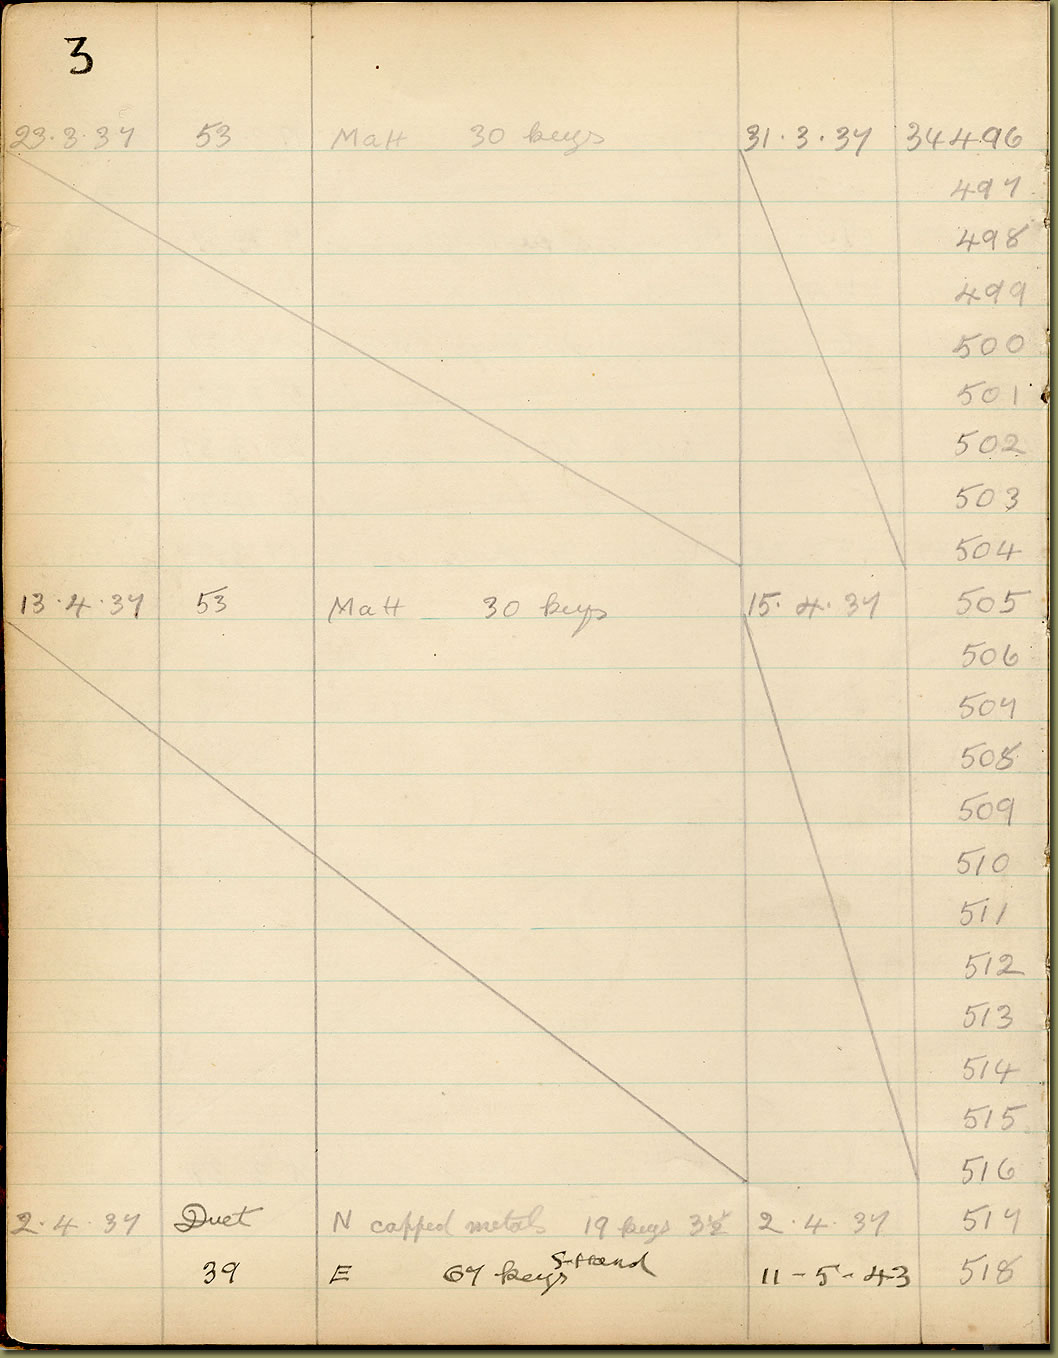 3
23.3.37 53 MaH 30 keys 31.3.37 34496
497
498
499
500
501
502
503
504
13.4.37 53 MaH 30 keys 15.4.37 505
506
507
508
509
510
511
512
513
514
515
516
2.4.37 Duet N capped metals 19 keys 3½ 2.4.37 517
39 E 67 keys S-Hand 11-5-43 518